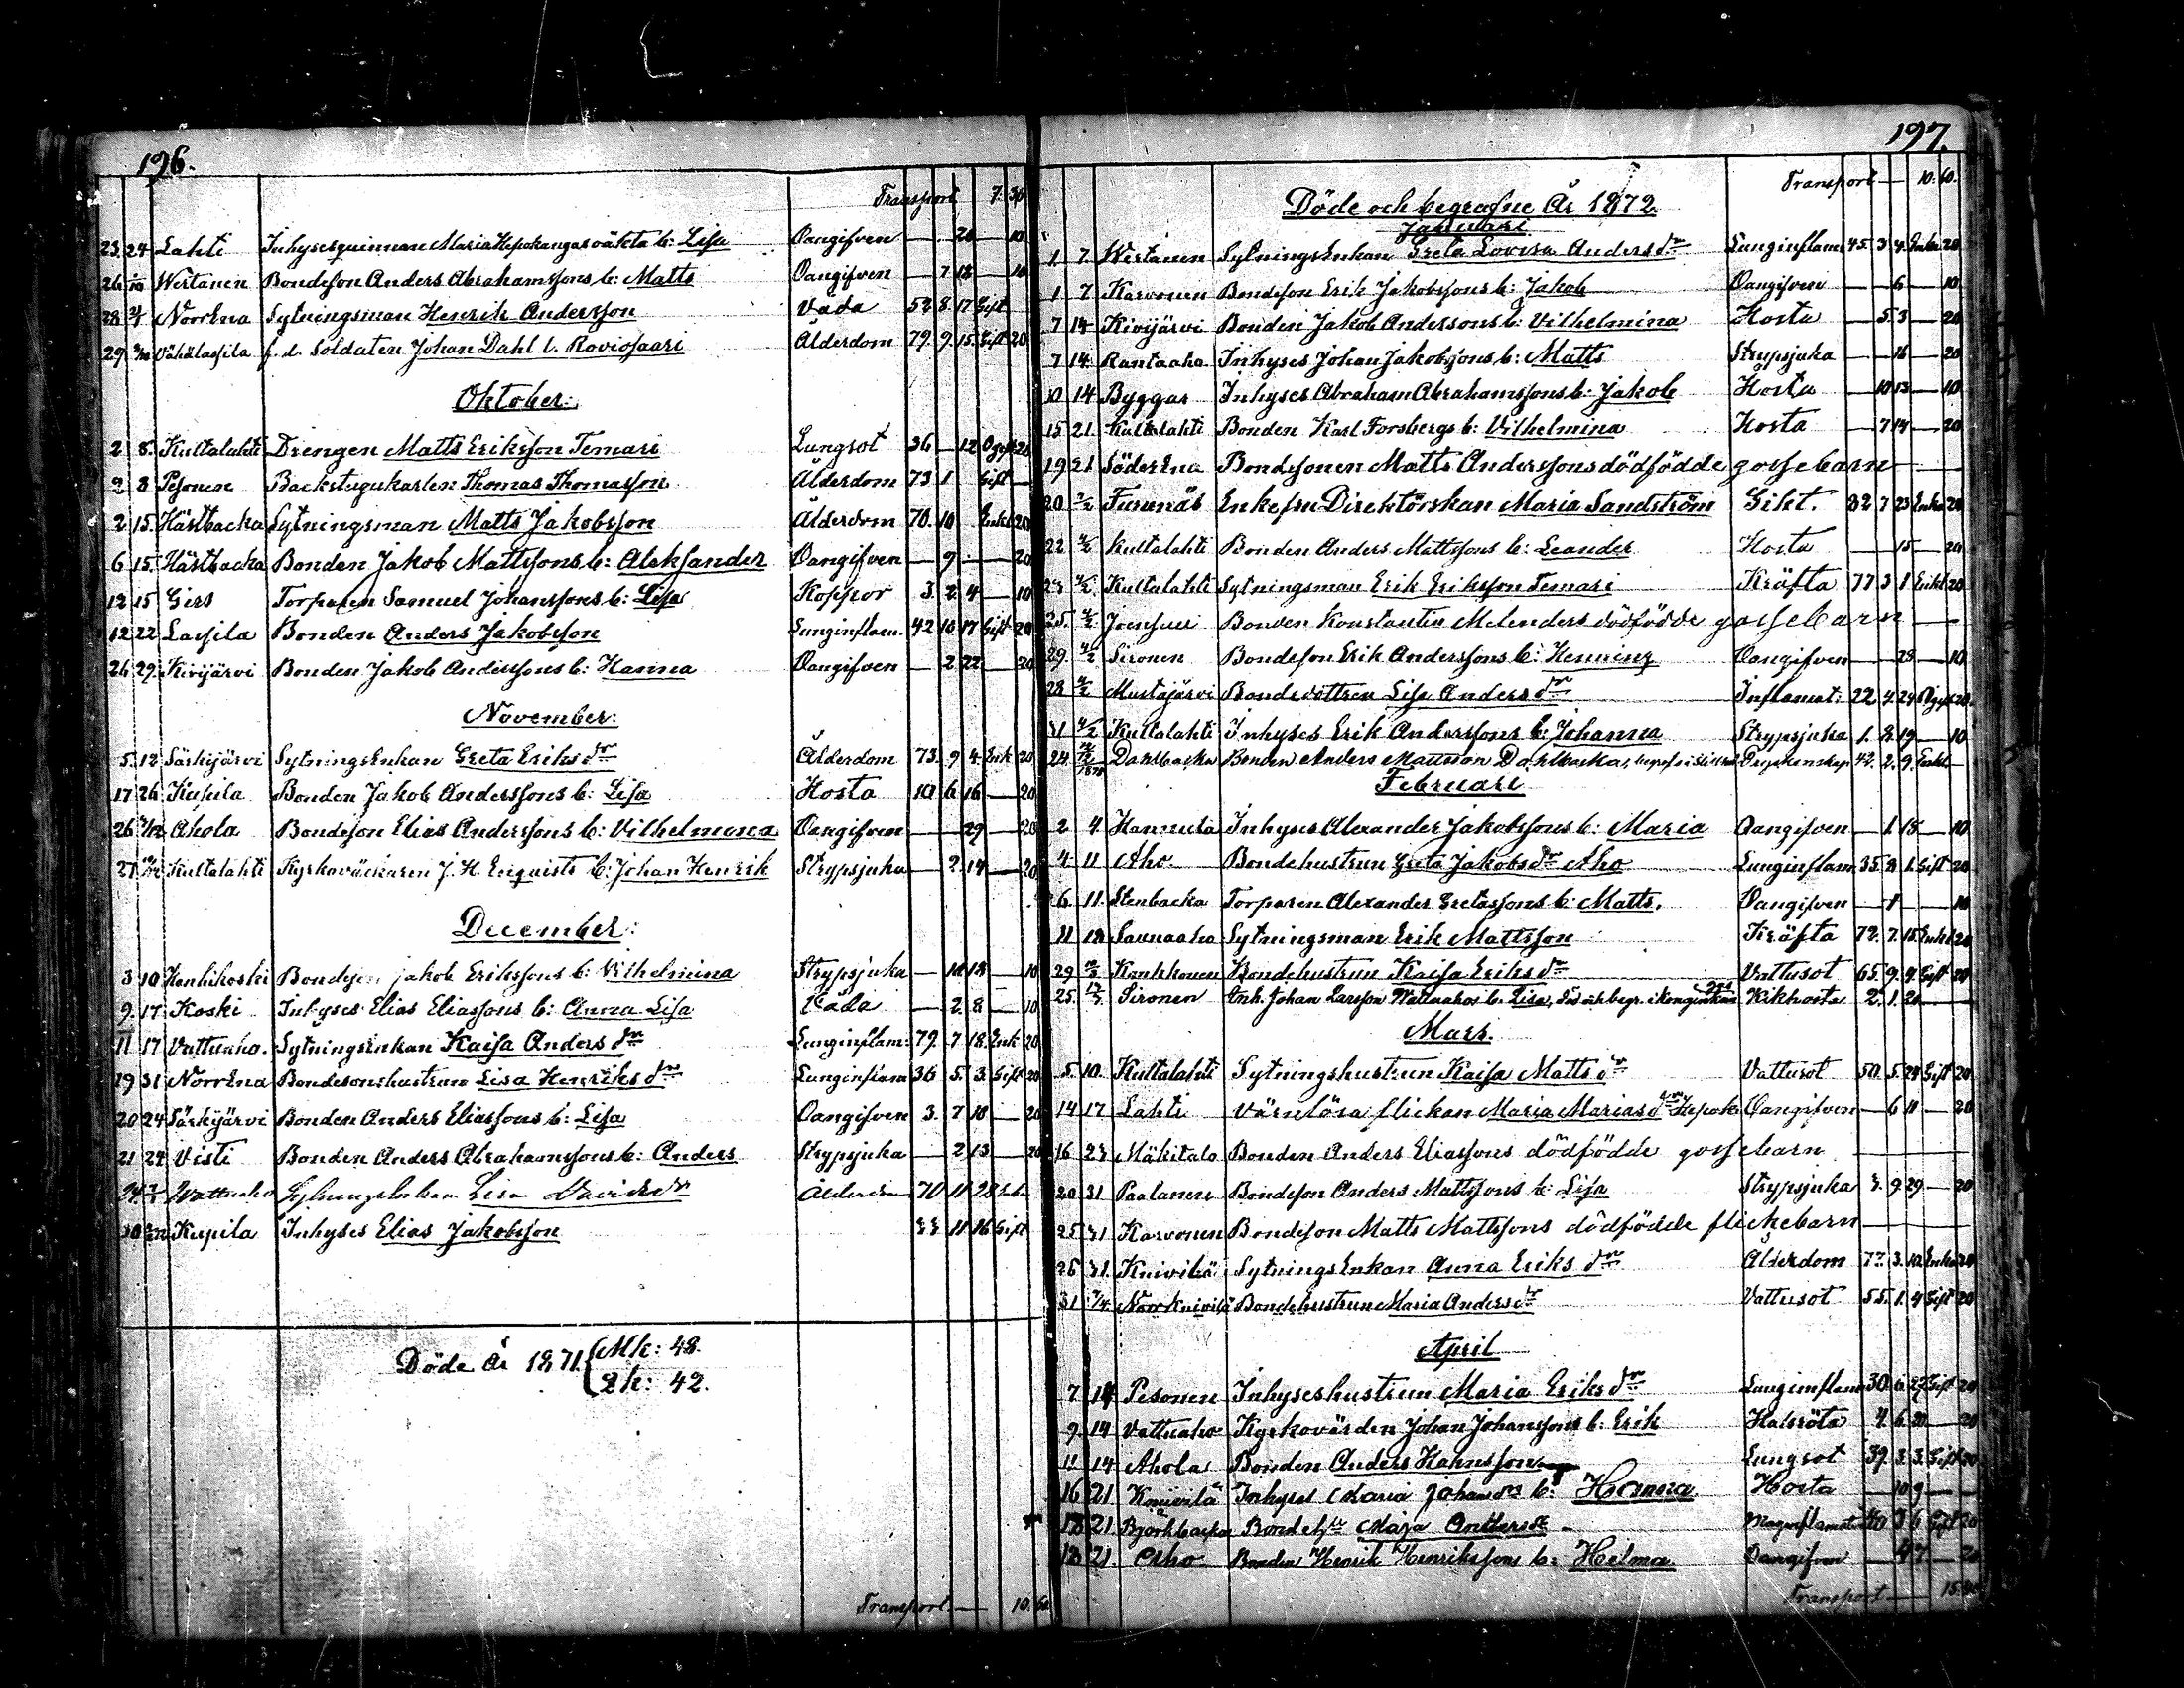 196.
Transport 7. 30
23 24 Lahti Inhysesquinnan Maria Hepokangas oäkta b: Lisa Oangifven — 20 — 10
26 1/10 Wertanen Bondeson Anders Abrahamssons b: Matts Oangifven — 7 18 — 10
28 Norrena Sytningsman Henrik Andersson Våda 52 8 17 Gift
29 Vähälassila f. d. Soldaten Johan Dahl l. Roviosaari Ålderdom 79. 9. 15. Gift 20
Oktober:
2 8. Kultalahti Drengen Matts Eriksson Temari Lungsot 36 — 12 Ogift 20
2 8 Pesonen Backstugukarlen Thomas Thomasson Ålderdom 73 1 Gift —
2 15. Hästbacka Sytningsman Matts Jakobsson Ålderdom 70. 10 Enkl 20
6 15. Hästbacka Bonden Jakob Mattssons b: Aleksander Oangifven — 9 — 20
12 15 Gers Torparen Samuel Johanssons b: Lisa Koppor 3. 2. 4 — 10
12 22 Lassila Bonden Anders Jakobsson Lunginflam. 42 10 17 Gift 20
24 29. Kivijärvi Bonden Jakob Anderssons b: Hanna Oangifven — 2 22 — 20
November:
5. 12 Särkijärvi SytningsEnkan Greta Eriksdr Ålderdom 73. 9 4 Enk 20
17 26 Kupila Bonden Jakob Anderssons b: Lisa Hosta 10 6 16 — 20
26 3/12 Ahola Bondeson Elias Anderssons b: Vilhelmina Oangifven — 29 — 20
27 Kultalahti Kyrkoväckaren J. H. Enquists b: Johan Henrik Strypsjuka — 2. 14 — 20
December:
3 10 Kanhikoski Bondeson Jakob Erikssons b: Vilhelmina Strypsjuka — 10 18 — 10
9. 17 Koski Inhyses Elias Eliassons b: Anna Lisa Våda — 2. 8 — 10
11 17 Vattuaho. SytningsEnkan Kaisa Andersdr Lunginflam: 79. 7 18. Enk 20
19 31 Norrena Bondesonshustrun Lisa Henriksdr Lunginflam 36 5. 3. Gift 20
20 24 Särkijärvi Bonden Anders Eliassons b: Lisa Oangifven 3. 7 10 — 20
21 24 Visti Bonden Anders Abrahamssons b: Anders Strypsjuka — 2 13 — 20
Wattuaho Sytningsenkan Lisa Davidsdr Ålderdom 70 11 28
30 Kupila Inhyses Elias Jakobsson 33 11 16 Gift
Döde År 1871 { Mk: 48.
Qk: 42.
Transport — 10. 60
197.
Transport — 10. 60.
Döde och begrafne År 1872.
Januari
1. 7. Wertanen SytningsEnkan Greta Lovisa Andersdr Lunginflam 45. 3 4. Enka 20
1 7 Karvonen Bondeson Erik Jakobssons b: Jakob Oangifven — 6 — 10
7 14 Kivijärvi Bonden Jakob Anderssons b: Vilhelmina Hosta — 5. 3 — 20
7 14. Rantaaho Inhyses Johan Jakobssons b: Matts Strypsjuka — 16 — 20
10 14 Byggar Inhyses Abraham Abrahamssons b: Jakob Hosta — 10 13 — 10
15 21. Kultalahti Bonden Karl Forsbergs b: Vilhelmina Hosta — 7 14 — 20
19 21 Söderena Bondesonen Matts Anderssons dödfödde gossebarn —
20 Furunäs Enkefru Direktörskan Maria Sandström Gikt. 82 7 23 Enka 20
22 4/2 Kultalahti Bonden Anders Mattssons b: Leander Hosta — 15 — 20
23 4/2 Kultalahti Sytningsman Erik Eriksson Temari Kräfta 77 3 1 Enkl 20
25. 4/2 Joensuu Bonden Konstantin Melenders dödfödde gossebarn —
29. 4/2 Sironen Bondeson Erik Anderssons b: Henning Oangifven — 28 — 10
28 4/2 Mustajärvi Bondedottren Lisa Andersdr Inflamat: 22 4. 24 Ogift 20.
31 4/2 Kultalahti Inhyses Erik Anderssons b: Johanna Strypsjuka 1. 2. 19 — 10
24 Dahlbacka Bonden Anders Mattsson Dahlbacka, 42. 2. 9.
Februari
2 4. Hannula Inhyses Alexander Jakobssons b: Maria Oangifven — 1. 18 — 10
4 11 Aho Bondehustrun Greta Jakobsdr Aho Lunginflam 35. 8 1. Gift 20
6. 11. Stenbacka Torparen Alexander Gretassons b: Matts. Oangifven — 1 — 10
11 18 Saunaaho Sytningsman Erik Mattsson Kräfta 72. 7. 15 Enkl 20
29 Kankkonen Bondehustrun Kaisa Eriksdr Vattusot 65. 9. 4. Gift 20
25. Sironen Inh. Johan Larsson Wattuahos b. Lisa, död och begr. i Kikhosta 2. 1. 20
Mars.
5. 10. Kultalahti Sytningshustrun Kaisa Mattsdr Vattusot 50. 5. 24 Gift 20
14 17 Lahti Värnlösa flickan Maria Mariasdr Hepok: Oangifven — 6 11 — 20
16 23 Mäkitalo Bonden Anders Eliassons dödfödde gossebarn —
20 31 Paalanen Bondeson Anders Mattssons b: Lisa Strypsjuka 3. 9. 29 — 20
25 31 Karvonen Bondeson Matts Mattssons dödfödde flickebarn —
26 31. Knivilä SytningsEnkan Anna Eriksdr Ålderdom 77 3. 12 Enka 20
31 7/4 Norrknivilä Bondehustrun Maria Andersdr Vattusot 55. 1. 4 Gift 20
April
7 14 Pesonen Inhyseshustrun Maria Eriksdr Lunginflam 30 6. 27 Gift 20
9. 14 Vattuaho Kyrkovärden Johan Johanssons b: Erik Halsröta 4. 6. 20 — 20
11 14 Ahola Bonden Anders Hansson Lungsot 39. 3. 3. Gift 20
16 21 Knivilä Inhyses Maria Johansdr b: Hanna Hosta — 10 9 —
18 21 Björkbacka Bondeh Maja Andersdr Gift 20
18 21. Aho Bonden Henrik Henrikssons b: Helma Oangifven — 4 7 — 20
Transport —